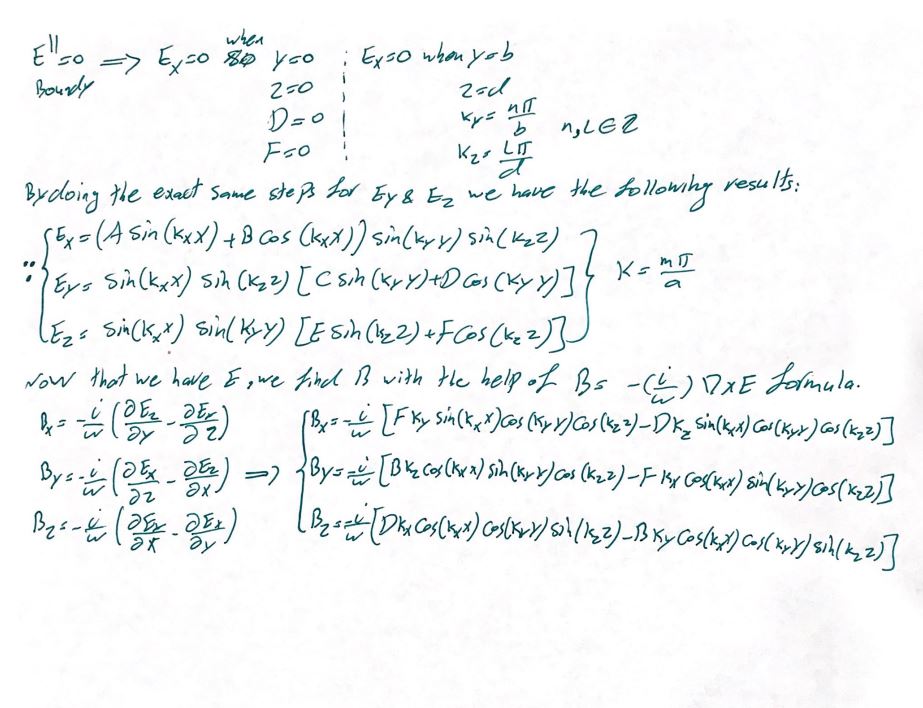 E^∥=0 ⟹ Ex=0 when y=0 ¦ Ex=0 when y=b
Boundy z=0 z=d
D=0 ky= nπ/b n,L∈Z
F=0 kz= Lπ/d
By doing the exact same steps for Ey & Ez we have the following results:
Ex=(A sin(kxx)+B cos(kxx)) sin(kyy) sin(kzz)
∵ Ey= sin(kxx) sin(kzz) [C sin(kyy)+D cos(kyy)] K= mπ/a
Ez= sin(kxx) sin(kyy) [E sin(kzz)+F cos(kzz)]
Now that we have E, we find B with the help of B= -(i/w) ∇×E formula.
Bx=-i/w (∂Ez/∂y - ∂Ey/∂z) Bx=-i/w [F ky sin(kxx)cos(kyy)cos(kzz)-D kz sin(kxx)cos(kyy)cos(kzz)]
By=-i/w (∂Ex/∂z - ∂Ez/∂x) ⟹ By=-i/w [B kz cos(kxx) sin(kyy)cos(kzz)-F kx cos(kxx) sin(kyy)cos(kzz)]
Bz=-i/w (∂Ey/∂x - ∂Ex/∂y) Bz=-i/w [D kx cos(kxx) cos(kyy) sin(kzz)-B ky cos(kxx) cos(kyy) sin(kzz)]